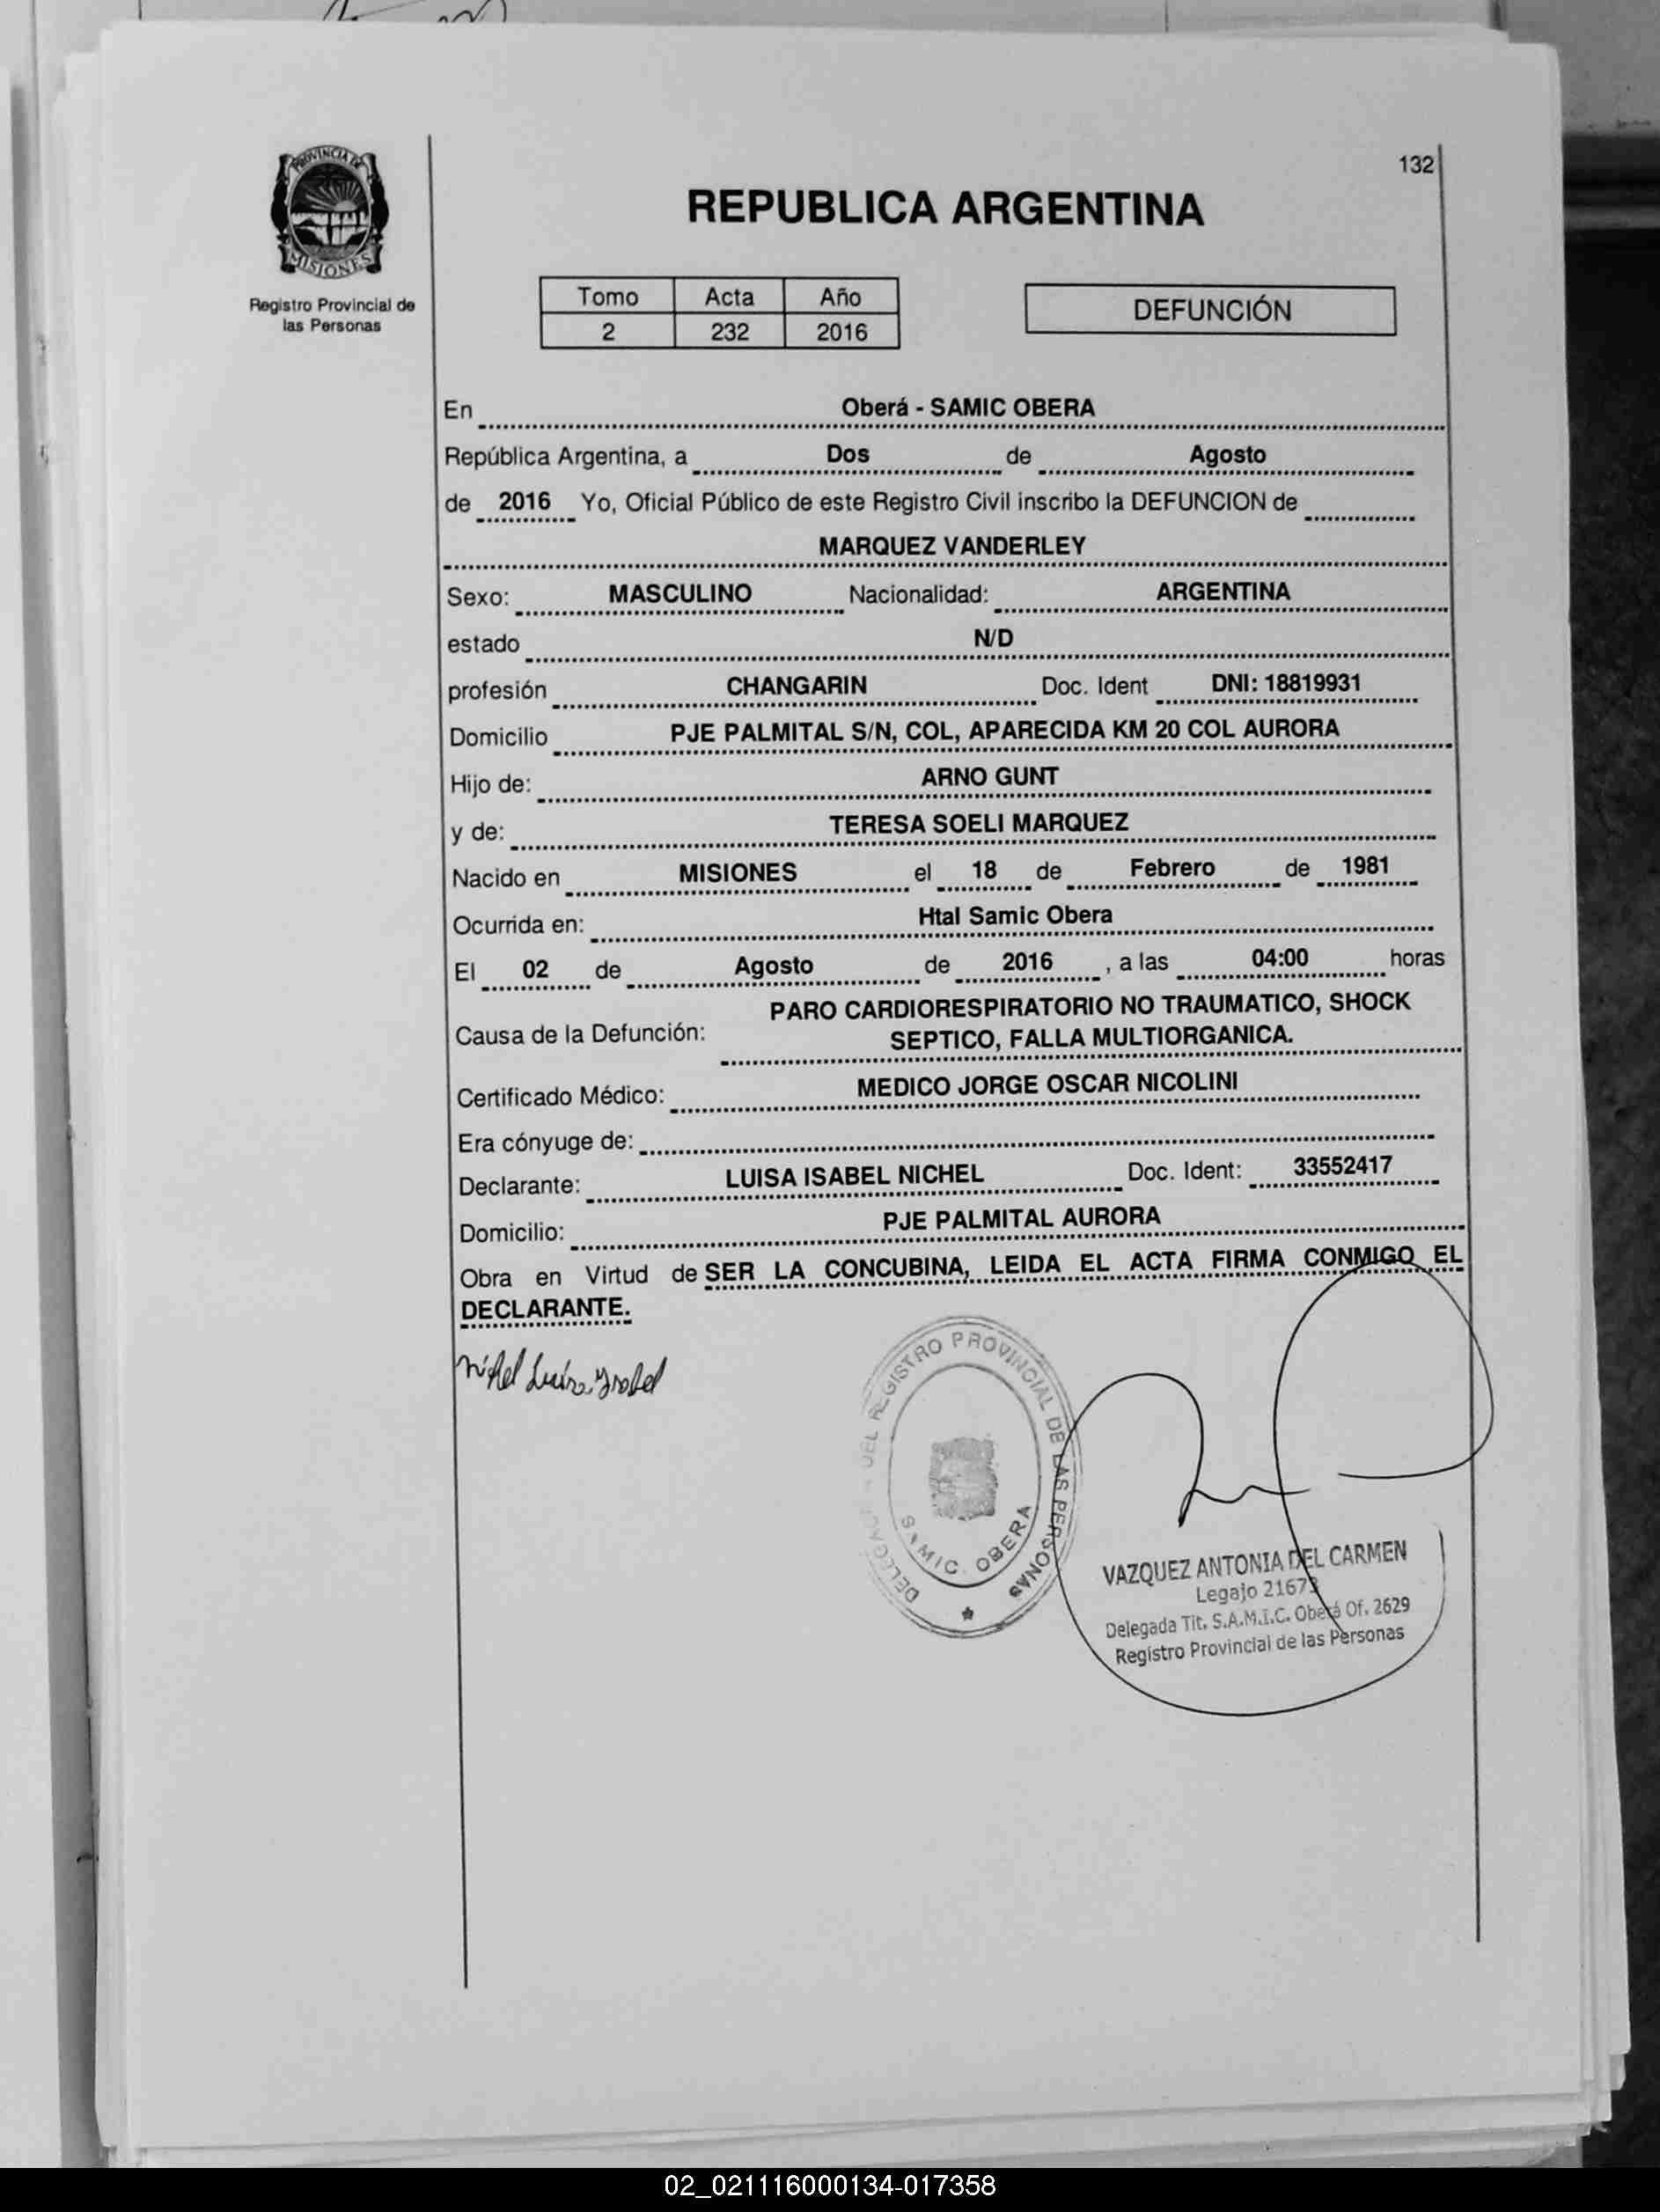 132
PROVINCIA DE
MISIONES
Registro Provincial de
las Personas
REPUBLICA ARGENTINA
Tomo Acta Año
2 232 2016
DEFUNCIÓN
En Oberá - SAMIC OBERA
República Argentina, a Dos de Agosto
de 2016 Yo, Oficial Público de este Registro Civil inscribo la DEFUNCION de
MARQUEZ VANDERLEY
Sexo: MASCULINO Nacionalidad: ARGENTINA
estado N/D
profesión CHANGARIN Doc. Ident DNI: 18819931
Domicilio PJE PALMITAL S/N, COL, APARECIDA KM 20 COL AURORA
Hijo de: ARNO GUNT
y de: TERESA SOELI MARQUEZ
Nacido en MISIONES el 18 de Febrero de 1981
Ocurrida en: Htal Samic Obera
El 02 de Agosto de 2016 , a las 04:00 horas
Causa de la Defunción: PARO CARDIORESPIRATORIO NO TRAUMATICO, SHOCK
SEPTICO, FALLA MULTIORGANICA.
Certificado Médico: MEDICO JORGE OSCAR NICOLINI
Era cónyuge de:
Declarante: LUISA ISABEL NICHEL Doc. Ident: 33552417
Domicilio: PJE PALMITAL AURORA
Obra en Virtud de SER LA CONCUBINA, LEIDA EL ACTA FIRMA CONMIGO EL
DECLARANTE.
Nichel Luisa Ysabel
DEL REGISTRO PROVINCIAL DE LAS PERSONAS
SAMIC. OBERA
VAZQUEZ ANTONIA DEL CARMEN
Legajo 21673
Delegada Tit. S.A.M.I.C. Oberá Of. 2629
Registro Provincial de las Personas
02_021116000134-017358